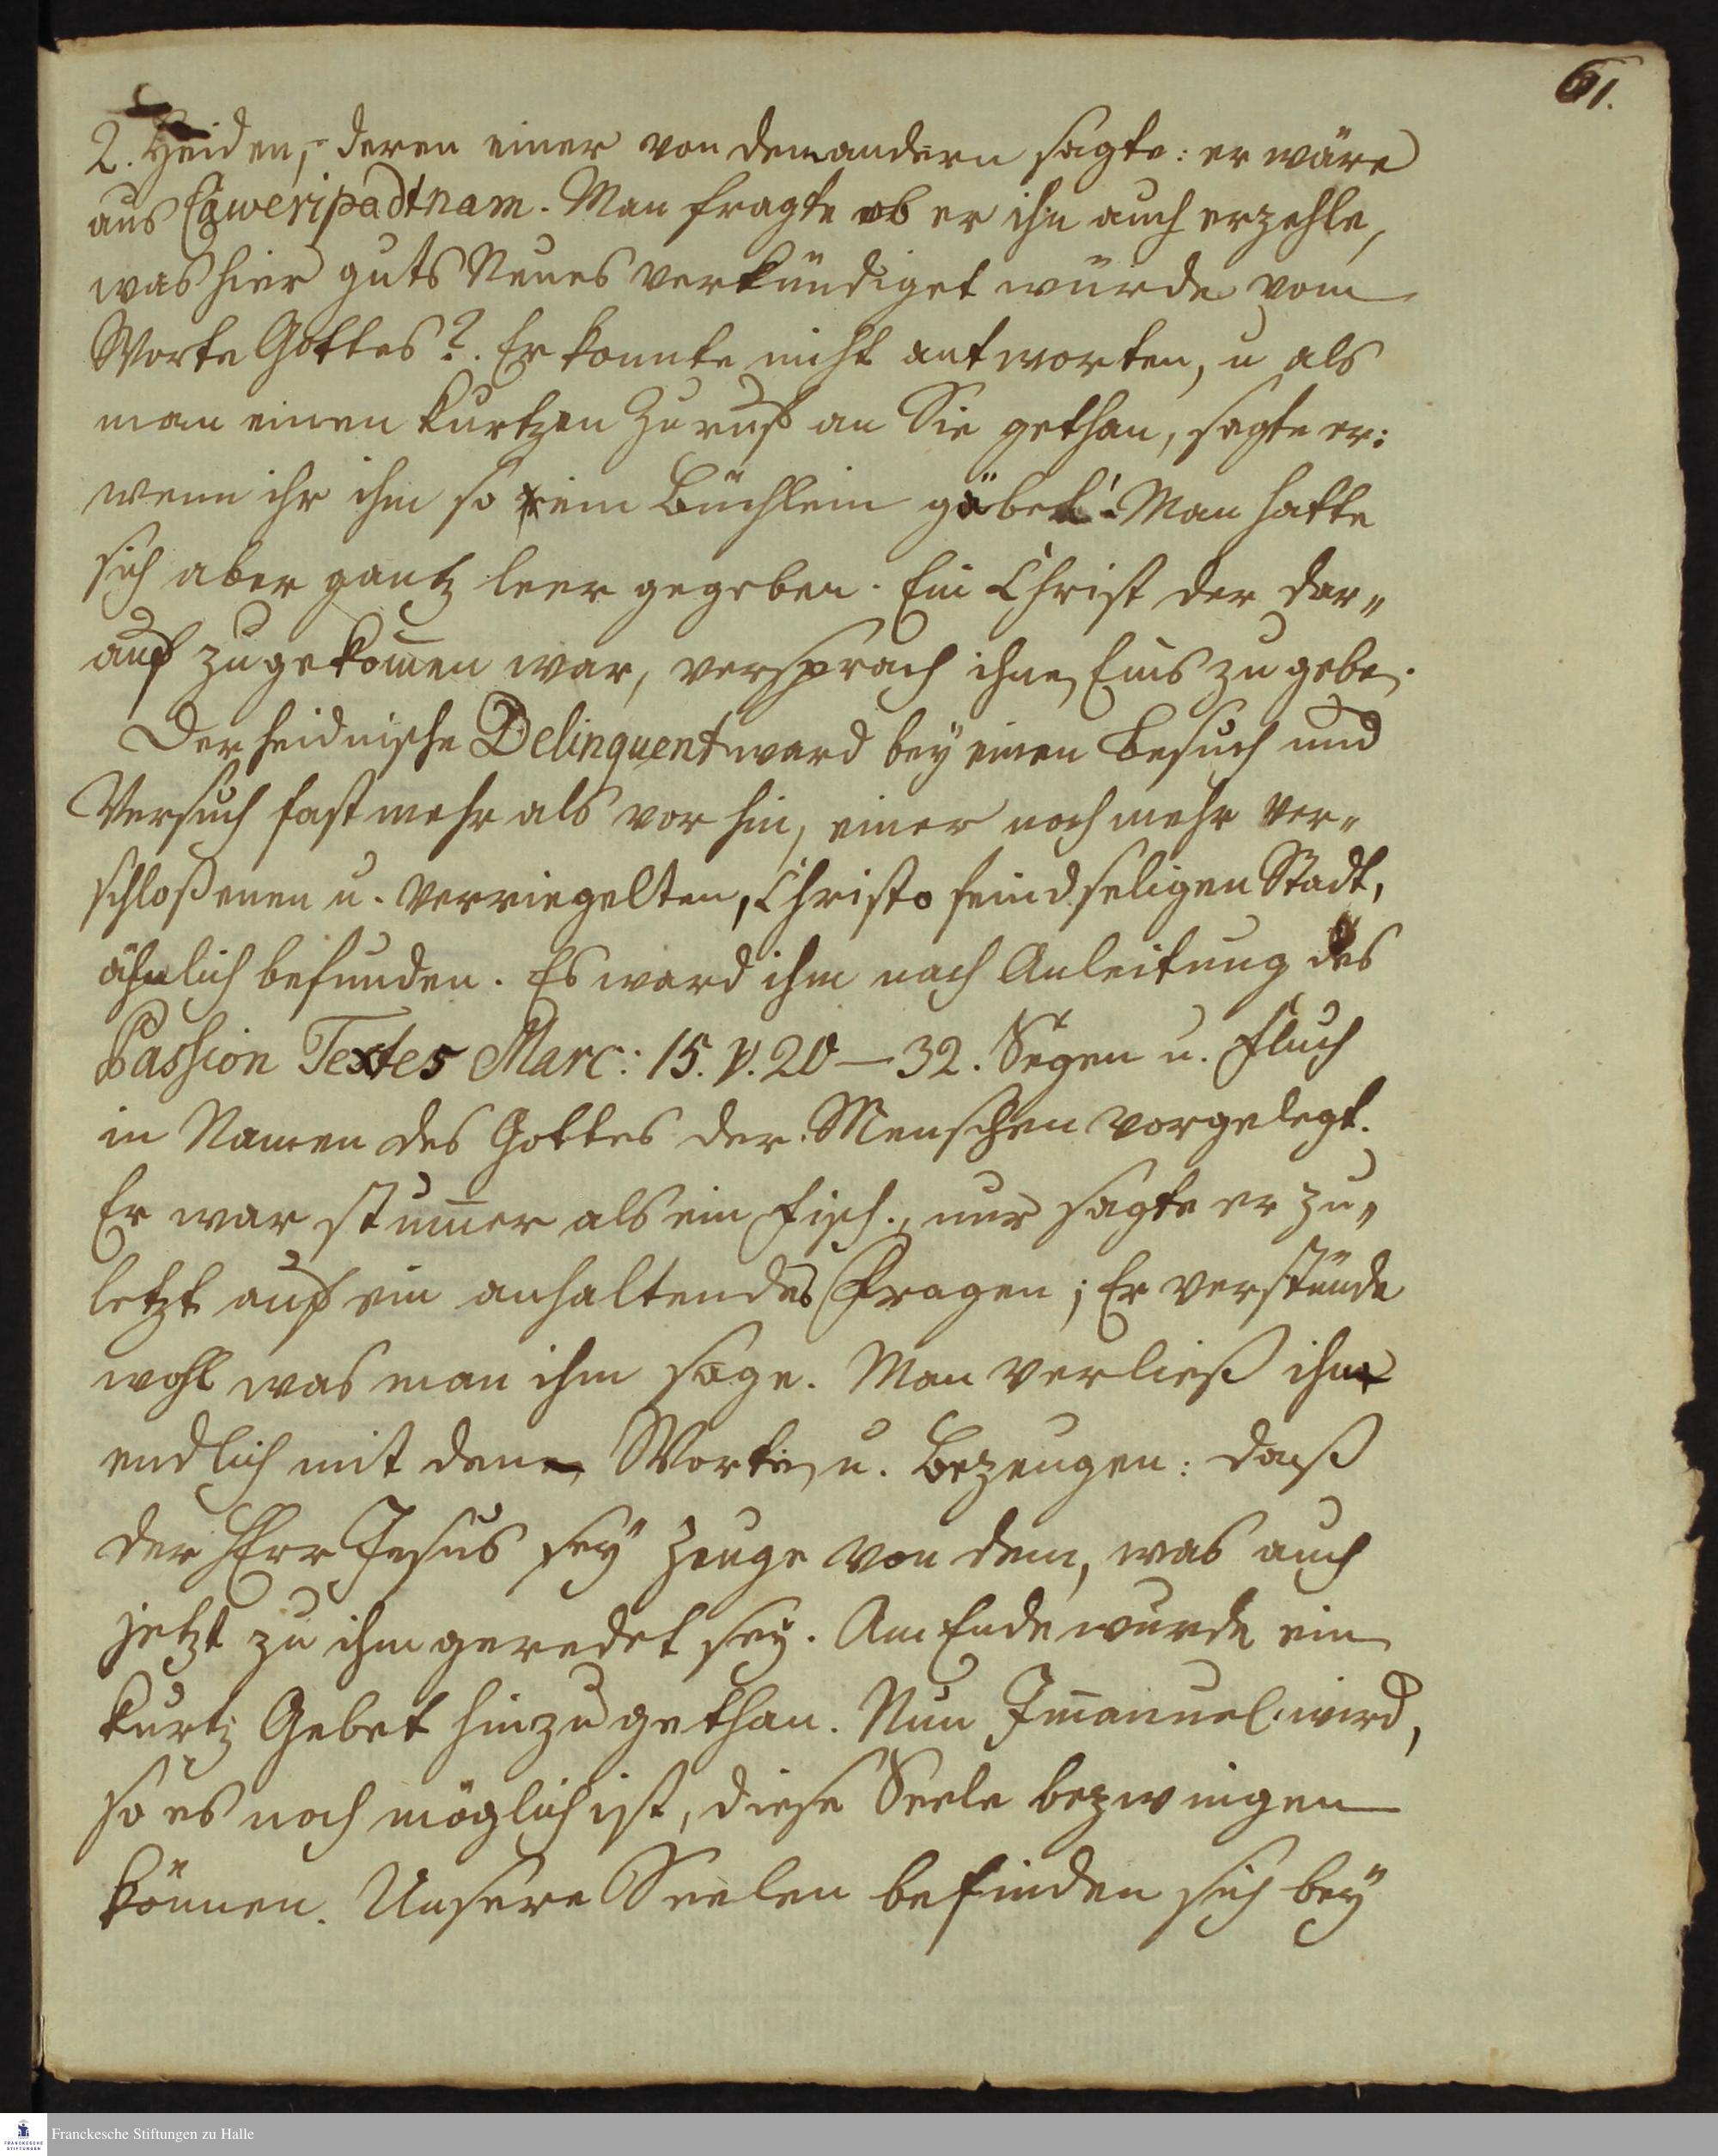 61.
2. Heiden, deren einer von dem andern sagte: er wäre
aus Caweripadtnam. Man fragte ob er ihn auch erzehle,
was hier guts Neues verkündiget würde vom
Worte Gottes?. Er konnte nicht antworten, u als
man einen kurtzen Zuruf an Sie gethan, sagte er:
wenn ihr ihm so ein Büchlein gäbet! Man hatte
sich aber gantz leer gegeben. Ein Christ der dar„
auf zugekom̅en war, versprach ihnen Eins zu geben.
Der heidnische Delinquent ward bey einen Besuch und
Versuch fast mehr als vor hin, einer noch mehr ver„
schloßenen u. verriegelten, Christo feindseligen Stadt,
ähnlich befunden. Es ward ihm nach Anleitung des
Passion Textes Marc: 15. v. 20–32. Segen u. Fluch
in Namen des Gottes der Menschen vorgelegt.
Er war stum̅er als ein Fisch., nur sagte er zu„
letzt auf ein anhaltendes Fragen; Er verstünde
wohl was man ihm sage. Man verließ ihn
endlich mit den Worten u. Bezeugen: daß
der HErr Jesus sey Zeuge von dem, was auch
jetzt zu ihm geredet sey. Am Ende wurde ein
kurtz Gebet hinzu gethan. Nun Im̅anuel wird,
so es noch möglich ist, diese Seele bezwingen
können. Unsere Seelen befinden sich bey
Franckesche Stiftungen zu Halle
FRANCKESCHE
STIFTUNGEN